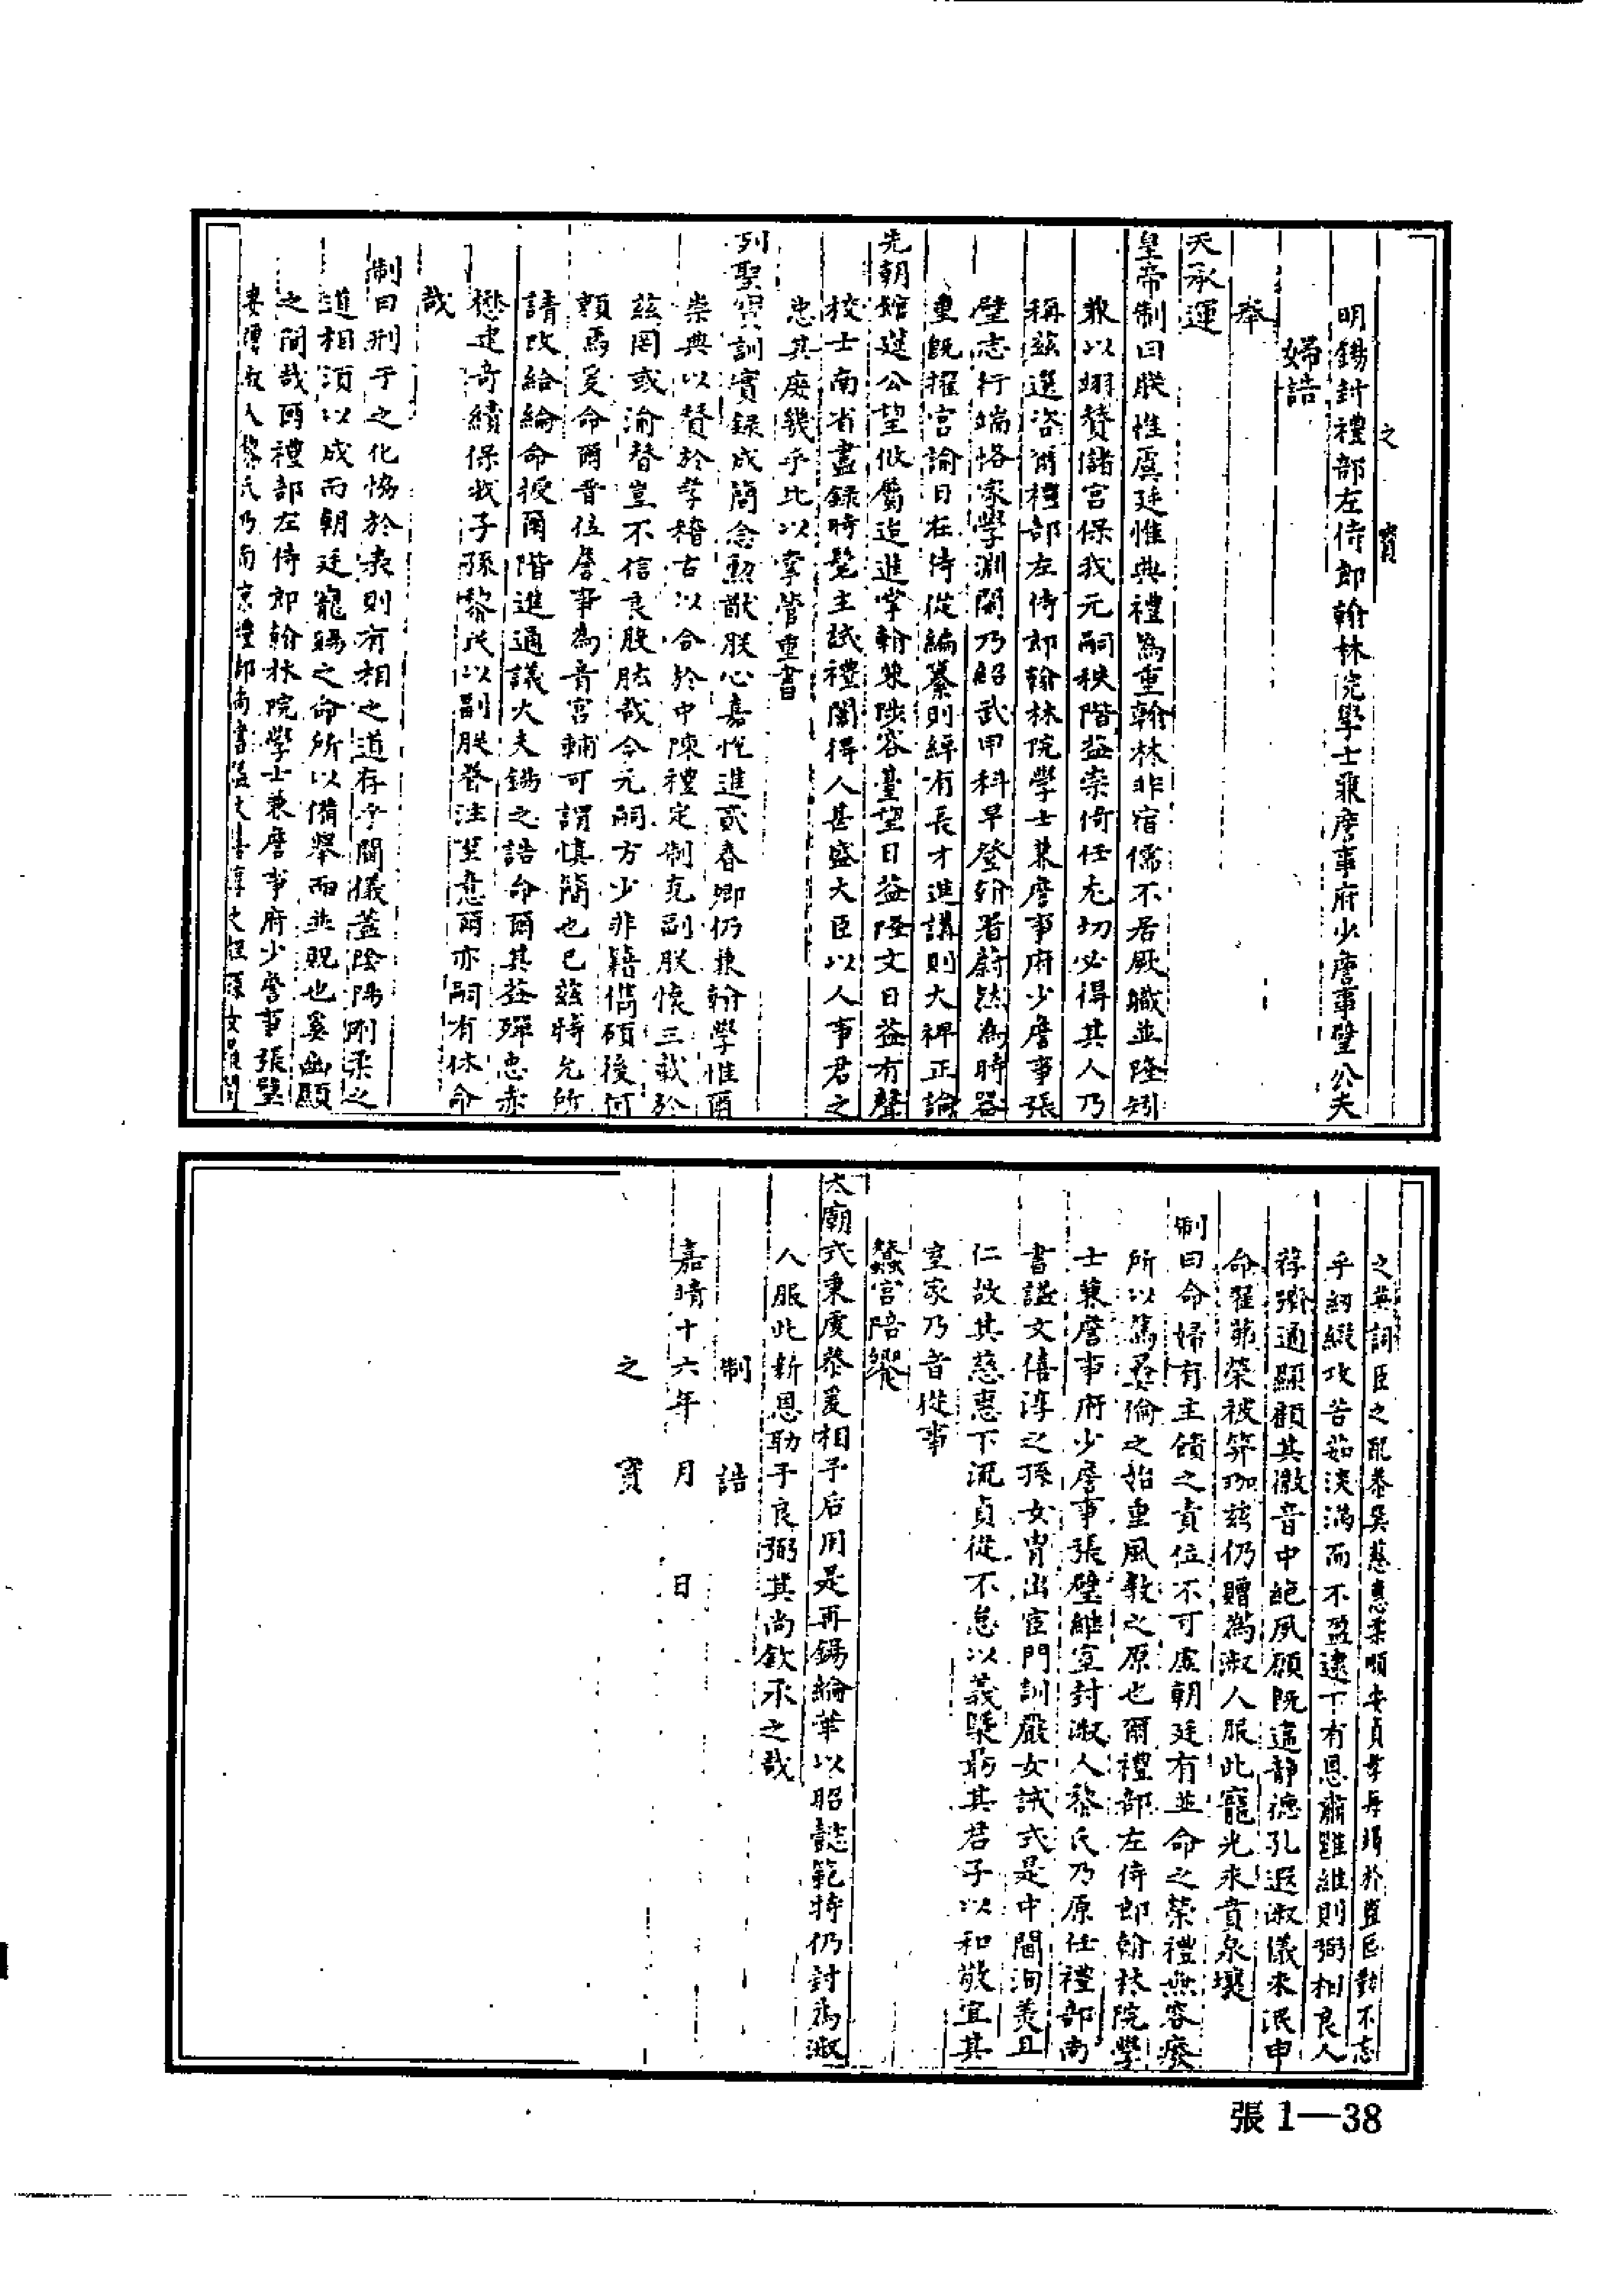 之　寶
明錫封禮部左侍郎翰林院學士兼詹事府少詹事璧公夫
婦誥
奉
天承運
皇帝制曰朕惟虞廷惟典禮為重翰林非宿儒不居厥職並隆矧
兼以翊贊儲宮保我元嗣秩階益崇倚任尤切必得其人乃
稱茲選咨爾禮部左侍郎翰林院學士兼詹事府少詹事張
璧志行端恪家學淵閎乃紹武甲科早登翰署蔚然為時器
重既擢宮諭日在侍從編纂則綽有長才進講則大裨正論
先朝館選公望攸屬迨進掌翰篆陟容臺望日益隆文日益有聲
校士南省盡錄時髦主試禮闈得人甚盛大臣以人事君之
忠其庶幾乎比以掌管重書
列聖寶訓實錄成簡念勲猷朕心嘉悅進貳春卿仍兼翰學惟爾
崇典以贊於孝稽古以合於中陳禮定制克副朕懷三載於
茲罔或渝替豈不信良股肱哉今元嗣方少非籍儁碩後何
賴焉爰命爾晋位詹事為青宮輔可謂慎簡也已茲特允所
請改給綸命授爾階進通議大夫錫之誥命爾其益殫忠赤
懋建奇績保我子孫黎民以副朕眷注至意爾亦嗣有休命
哉
制曰刑于之化恊於表則有相之道存乎閫儀蓋陰陽剛柔之
道相須以成而朝廷寵賜之命所以備舉而並貺也奚幽顯
之間哉爾禮部左侍郎翰林院學士兼詹事府少詹事張璧
妻贈淑人黎氏乃南京禮部尚書諡文僖淳之姪孫女
之英詞臣之配恭巽慈惠柔順安貞孝每 於 不忘
乎紉綴攻苦茹淡滿而不盈逮下有恩肅雝維則弼相良人
荐躋通顯顧其徽音中絕夙願既違靜德孔遐淑儀未泯申
命翟茀榮被笄珈茲仍贈為淑人服此寵光永賁泉壤
制曰命婦有主饋之責位不可虛朝廷有並命之榮禮無容廢
所以篤彝倫之始重風教之原也爾禮部左侍郎翰林院學
士兼詹事府少詹事張璧繼室封淑人黎氏乃原任禮部尚
書諡文僖淳之孫女冑出宦門訓嚴女誡式是中閫洵美且
仁故其慈惠下流貞從不怠以義槩勗其君子以和敬宜其
室家乃昔從事
蠶宮陪饗
太廟式秉虔恭爰相予后用是再錫綸華以昭懿範特仍封為淑
人服此新恩助于良弼其尚欽承之哉
制　誥
嘉晴十六年　月　日
之　寶
張1—38